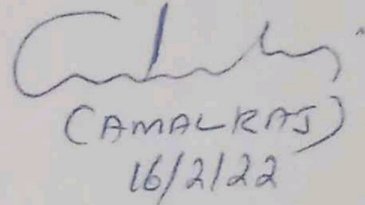 (AMALRAJ)
16/2/22